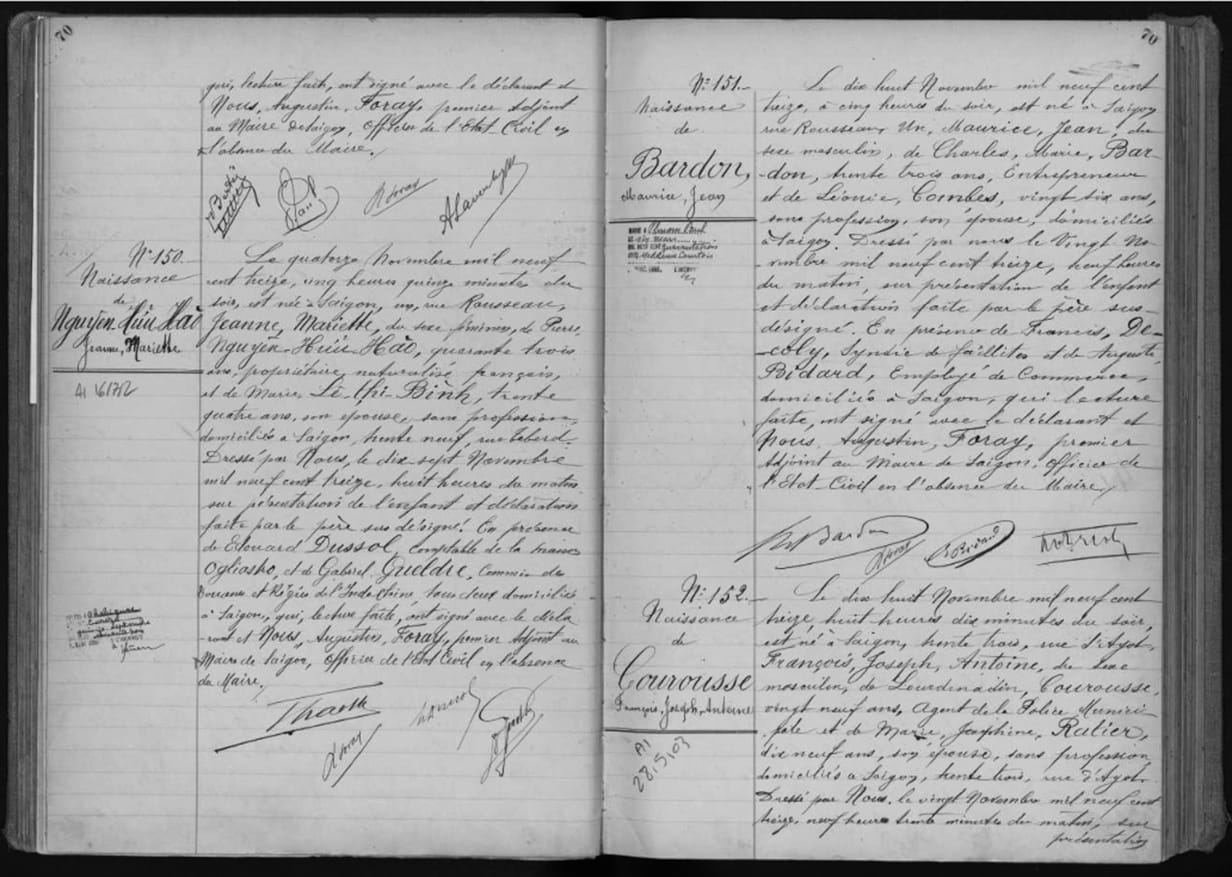 70
qui, lecture faite, ont signé avec le déclarant et
Nous, Augustin, Foray, premier Adjoint
au Maire de Saigon, Officier de l'Etat Civil en
l'absence du Maire.
N° 150.
Naissance
de
Nguyễn Hữu Hào
Jeanne, Mariette
Le quatorze Novembre mil neuf
cent treize, cinq heures quinze minutes du
soir, est née à Saigon, un, rue Rousseau,
Jeanne, Mariette, du sexe féminin, de Pierre,
Nguyễn-Hữu-Hào, quarante trois
ans, propriétaire, naturalisé français,
et de Marie, Lê-thi-Bình, trente
quatre ans, son épouse, sans profession,
domiciliés à Saigon, trente neuf, rue Taberd.
Dressé par Nous, le dix sept Novembre
mil neuf cent treize, huit heures du matin
sur présentation de l'enfant et déclaration
faite par le père sus désigné. En présence
de Edouard Dussol, comptable de la maison
Ogliastro, et de Gabriel Gueldre, Commis des
Douanes et Régies de l'Indo-Chine, tous deux domiciliés
à Saigon, qui, lecture faite, ont signé avec le décla
rant et Nous, Augustin, Foray, premier Adjoint au
Maire de Saigon, Officier de l'Etat Civil en l'absence
du Maire.
70
N° 151.-
Naissance
de
Bardon,
Maurice, Jean
Le dix huit Novembre mil neuf cent
treize, à cinq heures du soir, est né à Saigon
rue Rousseau, Un, Maurice, Jean, du
sexe masculin, de Charles, Marie, Bar-
-don, trente trois ans, Entrepreneur
et de Léonie, Combes, vingt six ans,
sans profession, son épouse, domiciliés
à Saigon. Dressé par nous le Vingt No-
vembre mil neuf cent treize, neuf heures
du matin, sur présentation de l'enfant
et déclaration faite par le père sus-
désigné. En présence de Francis, De-
-coly, Syndic de faillites et de Auguste
Bidard, Employé de Commerce,
domiciliés à Saigon, qui lecture
faite, ont signé avec le déclarant et
Nous, Augustin, Foray, premier
Adjoint au Maire de Saigon, Officier de
l'Etat-Civil en l'absence du Maire.
N° 152.-
Naissance
de
Courousse
François, Joseph, Antoine
Le dix huit Novembre mil neuf cent
treize, huit heures dix minutes du soir,
est né à Saigon, trente trois, rue d'Ayot
François, Joseph, Antoine, du sexe
masculin, de Lourdenadin, Courousse,
vingt neuf ans, Agent de la Police Munici
pale et de Marie, Joséphine, Ratier,
dix neuf ans, son épouse, sans profession
domiciliés à Saigon, trente trois, rue d'Ayot.
Dressé par Nous, le vingt Novembre mil neuf cent
treize, neuf heures trente minutes du matin, sur
présentation